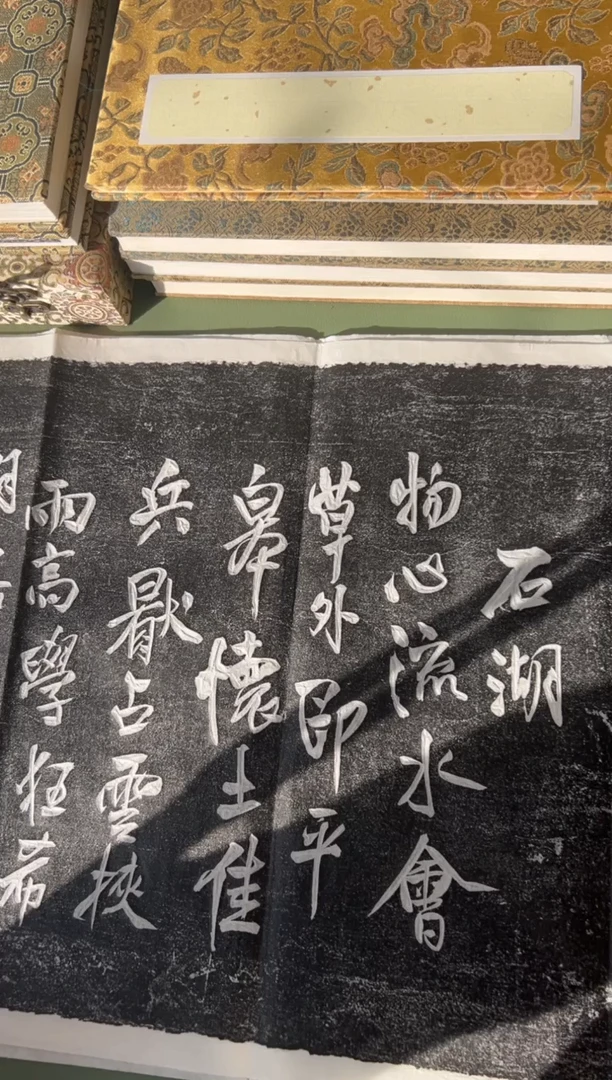 石湖
物心流水會
草外即平
皋懷土佳
兵猒占雲挾
雨高學狂希